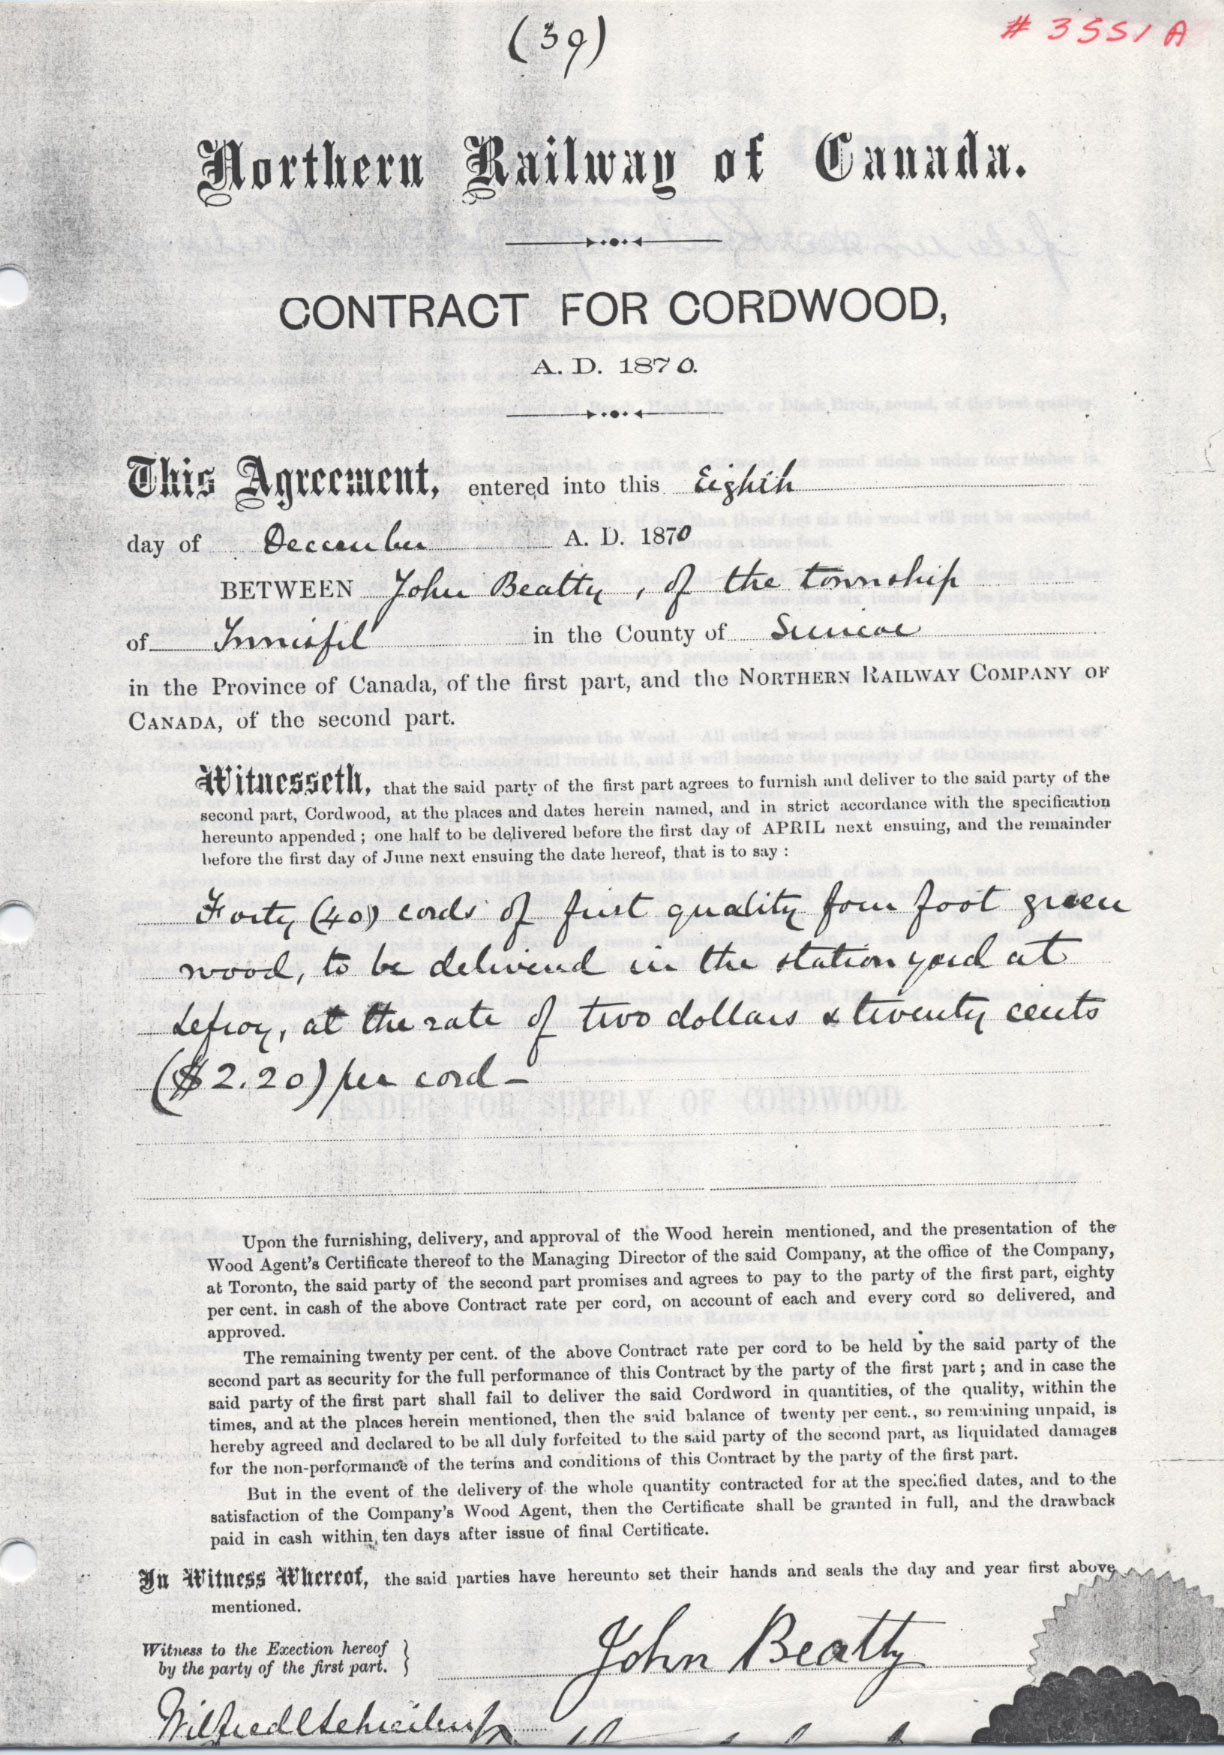 (39)
# 3551 A
Northern Railway of Canada.
CONTRACT FOR CORDWOOD,
A. D. 1870.
This Agreement, entered into this Eighth
day of December A. D. 1870
BETWEEN John Beatty, of the township
of Innisfil in the County of Simcoe
in the Province of Canada, of the first part, and the NORTHERN RAILWAY COMPANY OF
CANADA, of the second part.
Witnesseth, that the said party of the first part agrees to furnish and deliver to the said party of the
second part, Cordwood, at the places and dates herein named, and in strict accordance with the specification
hereunto appended; one half to be delivered before the first day of APRIL next ensuing, and the remainder
before the first day of June next ensuing the date hereof, that is to say:
Forty (40) cords of first quality four foot green
wood, to be delivered in the station yard at
Lefroy, at the rate of two dollars & twenty cents
($2.20) per cord—
Upon the furnishing, delivery, and approval of the Wood herein mentioned, and the presentation of the
Wood Agent's Certificate thereof to the Managing Director of the said Company, at the office of the Company,
at Toronto, the said party of the second part promises and agrees to pay to the party of the first part, eighty
per cent. in cash of the above Contract rate per cord, on account of each and every cord so delivered, and
approved.
The remaining twenty per cent. of the above Contract rate per cord to be held by the said party of the
second part as security for the full performance of this Contract by the party of the first part; and in case the
said party of the first part shall fail to deliver the said Cordword in quantities, of the quality, within the
times, and at the places herein mentioned, then the said balance of twenty per cent., so remaining unpaid, is
hereby agreed and declared to be all duly forfeited to the said party of the second part, as liquidated damages
for the non-performance of the terms and conditions of this Contract by the party of the first part.
But in the event of the delivery of the whole quantity contracted for at the specified dates, and to the
satisfaction of the Company's Wood Agent, then the Certificate shall be granted in full, and the drawback
paid in cash within ten days after issue of final Certificate.
In Witness Whereof, the said parties have hereunto set their hands and seals the day and year first above
mentioned.
Witness to the Exection hereof
by the party of the first part.
John Beatty
Wilfred